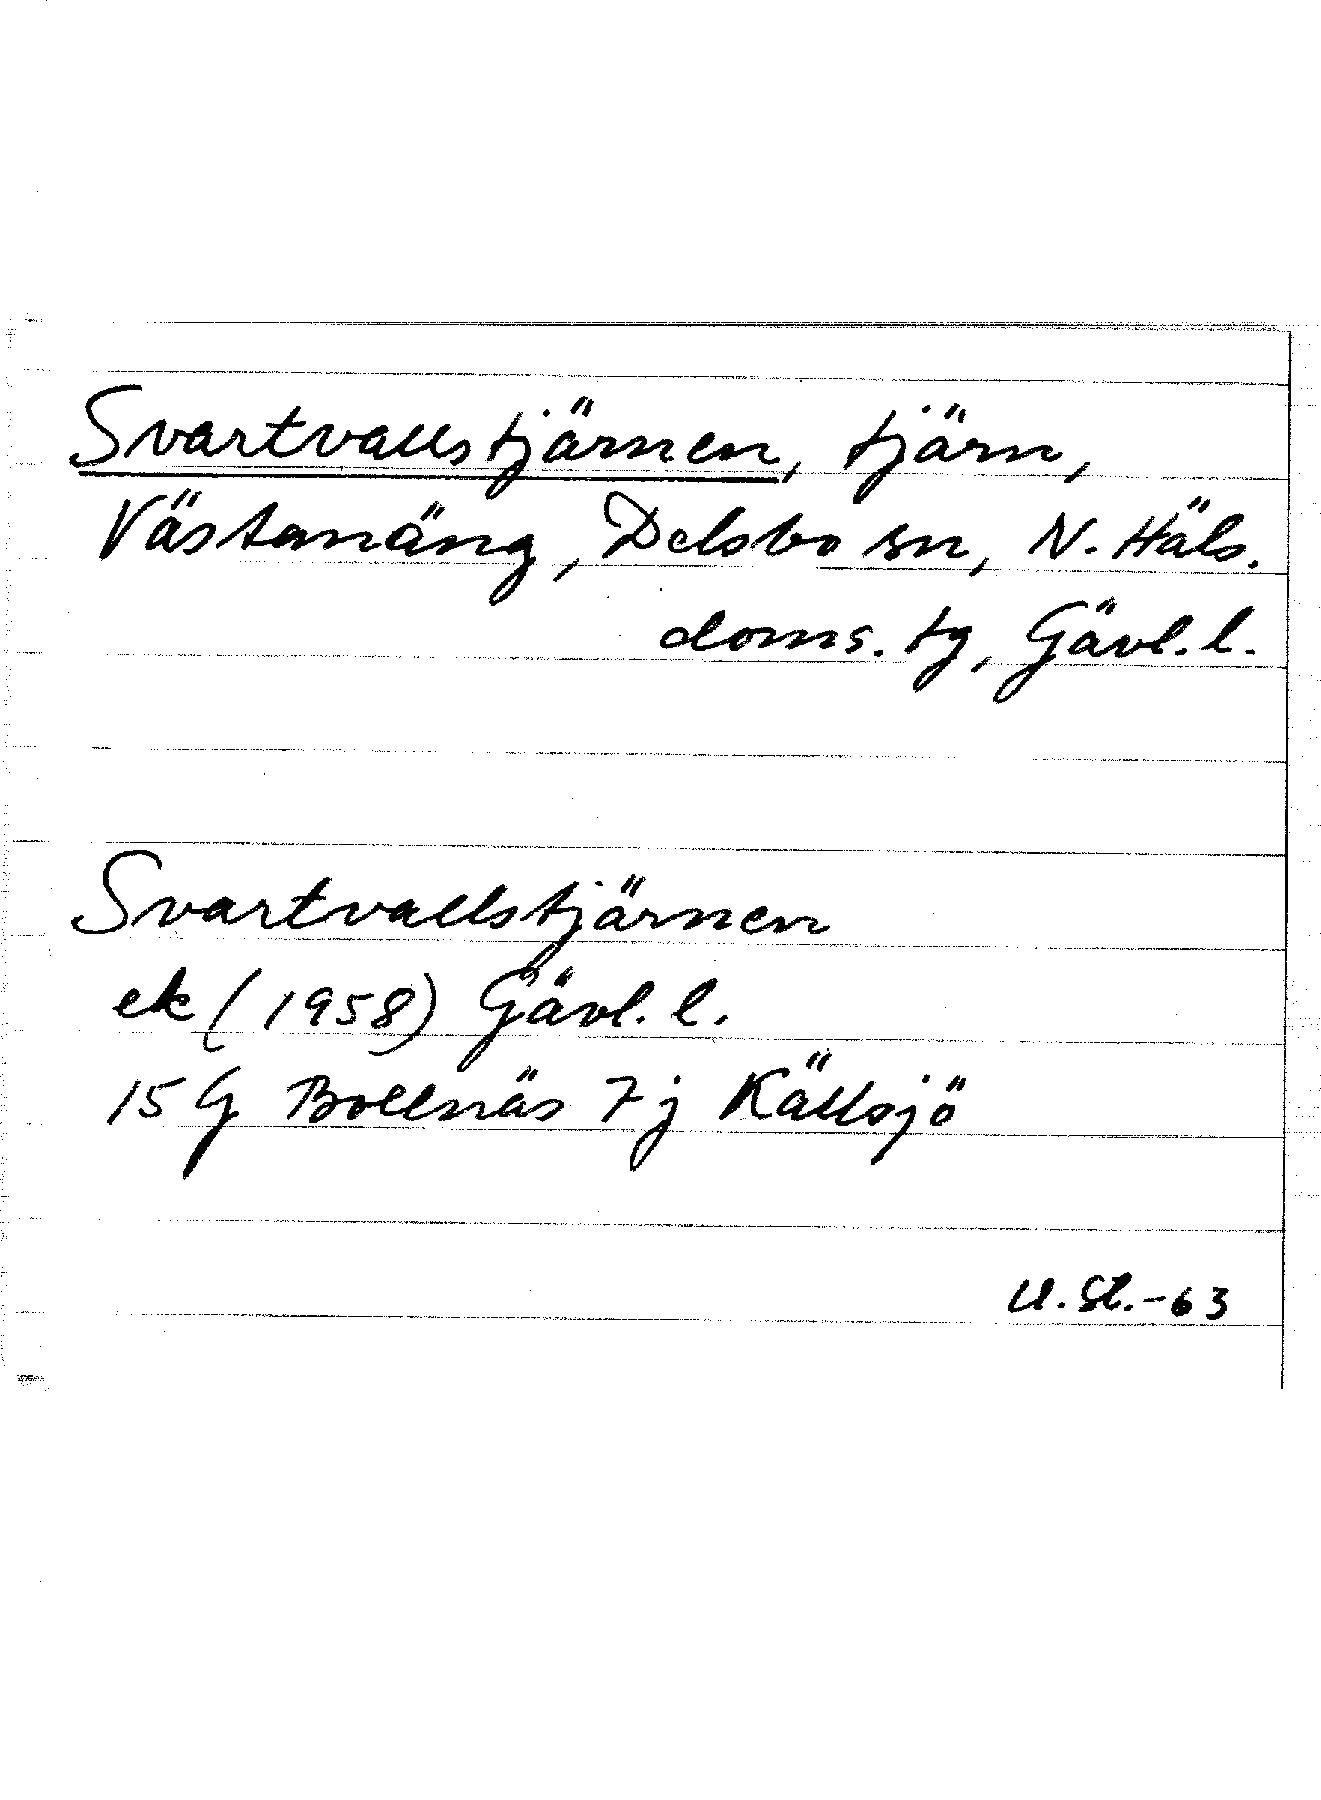 Svartvallstjärnen, tjärn,
Västanäng, Delsbo sn, N. Häls.
doms. tg, Gävl. l.
Svartvallstjärnen
ek (1958) Gävl. l.
15 G Bollnäs 7j Källsjö
U. St. -63